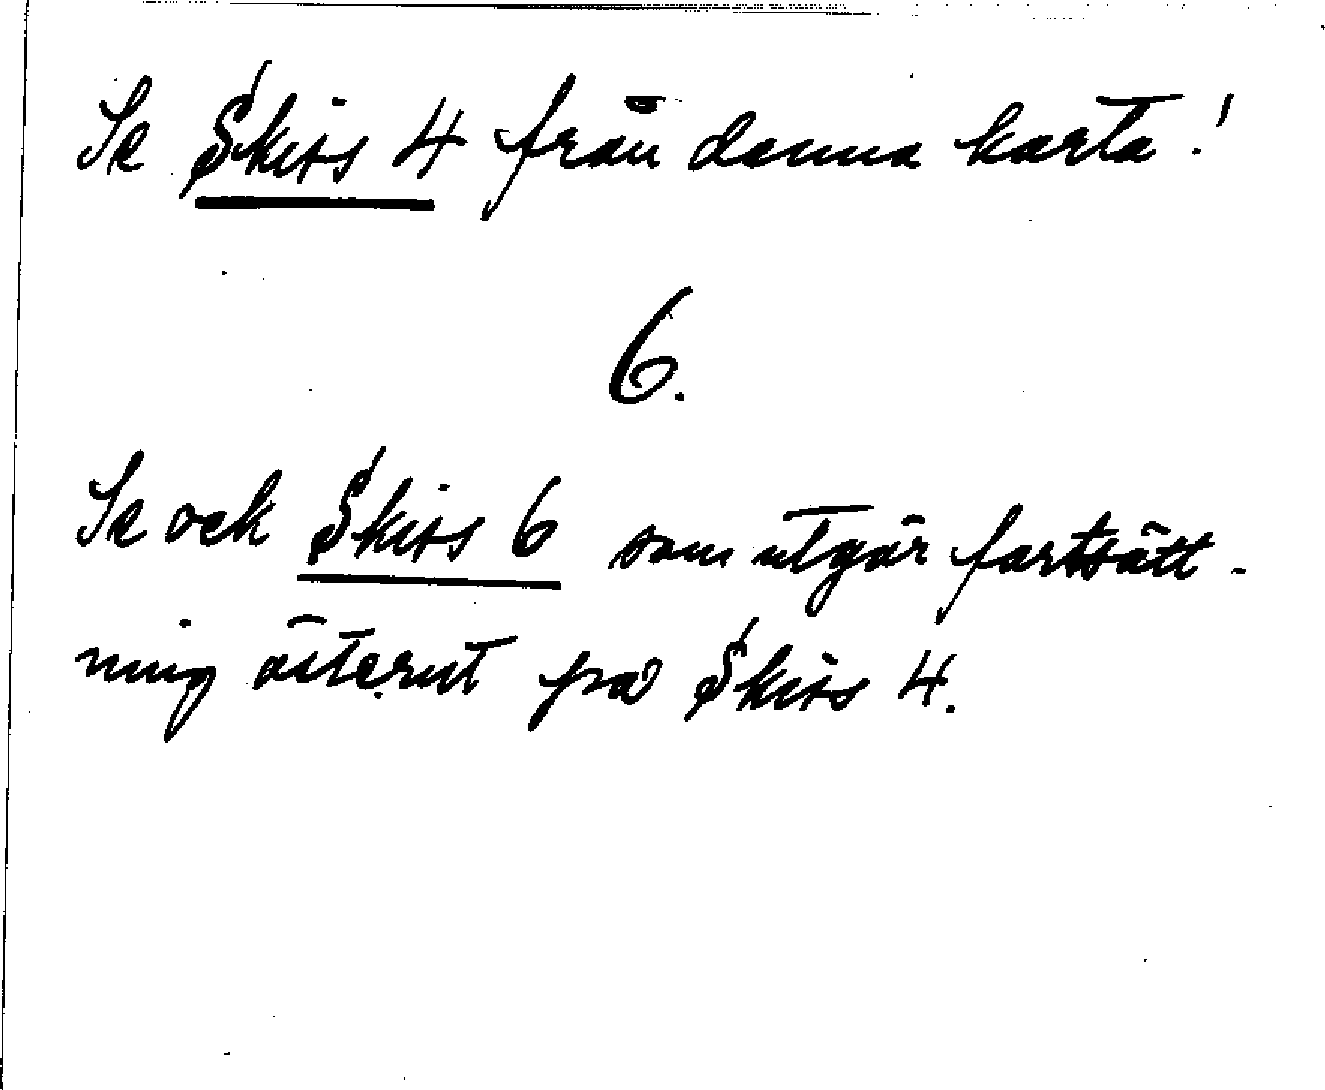 Se Skiss 4 från denna karta!
6.
Se ock Skiss 6 som utgör fortsätt-
ning österut på Skiss 4.